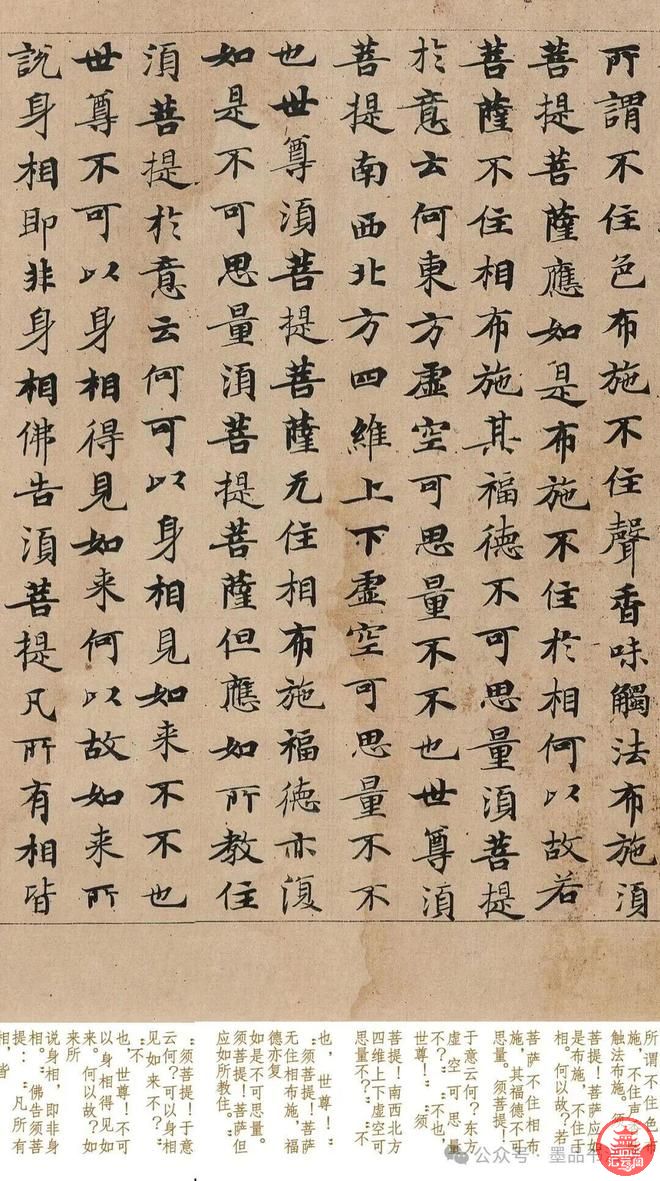 所謂不住色布施不住聲香味觸法布施須
菩提菩薩應如是布施不住於相何以故若
菩薩不住相布施其福德不可思量須菩提
於意云何東方虛空可思量不不也世尊須
菩提南西北方四維上下虛空可思量不不
也世尊須菩提菩薩无住相布施福德亦復
如是不可思量須菩提菩薩但應如所教住
須菩提於意云何可以身相見如来不不也
世尊不可以身相得見如来何以故如来所
說身相即非身相佛告須菩提凡所有相皆
所谓不住色布
施，不住声
触法布施。须
菩提！菩萨应如
是布施，不住于
相。何以故？若
菩萨不住相布
施，其福德不可
思量。须菩提！
于意云何？东方
虚空可思量
不？”“不也，
世尊！” “须
菩提！南西北方
四维上下虚空可
思量不？”“不
也，世尊！”
“须菩提！菩萨
无住相布施，福
德亦复
如是不可思量。
须菩提！菩萨但
应如所教住。”
“须菩提！于意
云何？可以身相
见如来不？”
“不
也，世尊！不可
以身相得见如
来。何以故？如
来所
说身相，即非身
相。”佛告须菩
提：“凡所有
相，皆
公众号 · 墨品书
汇云阁